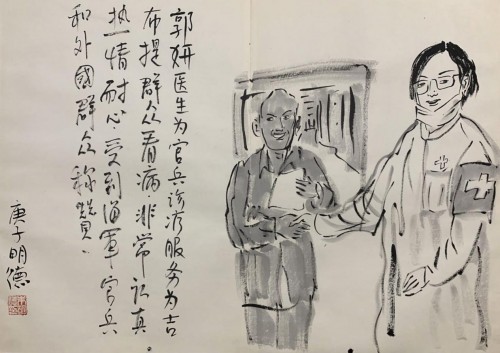 郭妍医生为官兵诊疗服务为吉
布提群众看病、非常认真。
热情耐心、受到海軍官兵
和外國群众称贊、
庚子明德